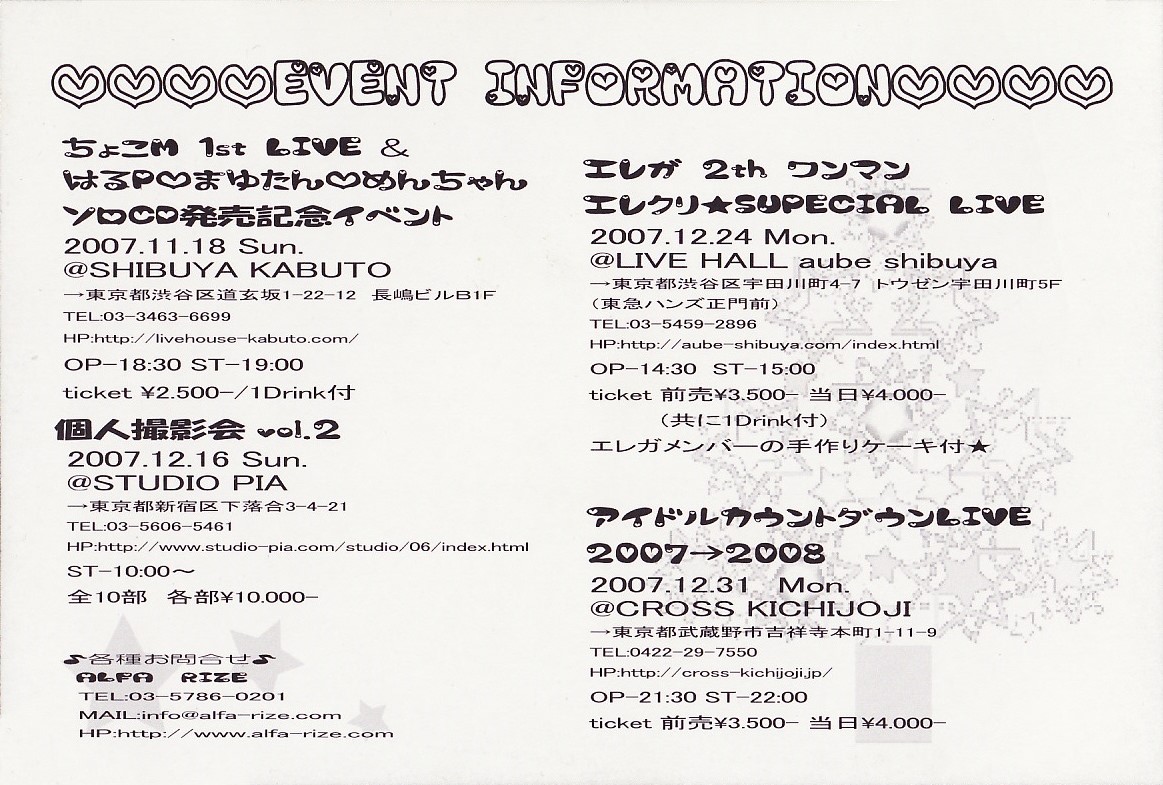 ♡♡♡♡EVENT INFORMATION♡♡♡♡
ちょこM 1st LIVE &
はるP♡まゆたん♡めんちゃん
ソロCD発売記念イベント
2007.11.18 Sun.
@SHIBUYA KABUTO
→東京都渋谷区道玄坂1-22-12 長嶋ビルB1F
TEL:03-3463-6699
HP:http://livehouse-kabuto.com/
OP-18:30 ST-19:00
ticket ¥2.500-/1Drink付
個人撮影会 vol.2
2007.12.16 Sun.
@STUDIO PIA
→東京都新宿区下落合3-4-21
TEL:03-5606-5461
HP:http://www.studio-pia.com/studio/06/index.html
ST-10:00～
全10部 各部¥10.000-
♪各種お問合せ♪
ALFA RIZE
TEL:03-5786-0201
MAIL:info@alfa-rize.com
HP:http://www.alfa-rize.com
エレガ 2th ワンマン
エレクリ★SUPECIAL LIVE
2007.12.24 Mon.
@LIVE HALL aube shibuya
→東京都渋谷区宇田川町4-7 トウゼン宇田川町5F
（東急ハンズ正門前）
TEL:03-5459-2896
HP:http://aube-shibuya.com/index.html
OP-14:30 ST-15:00
ticket 前売¥3.500- 当日¥4.000-
（共に1Drink付）
エレガメンバーの手作りケーキ付★
アイドルカウントダウンLIVE
2007→2008
2007.12.31 Mon.
@CROSS KICHIJOJI
→東京都武蔵野市吉祥寺本町1-11-9
TEL:0422-29-7550
HP:http://cross-kichijoji.jp/
OP-21:30 ST-22:00
ticket 前売¥3.500- 当日¥4.000-